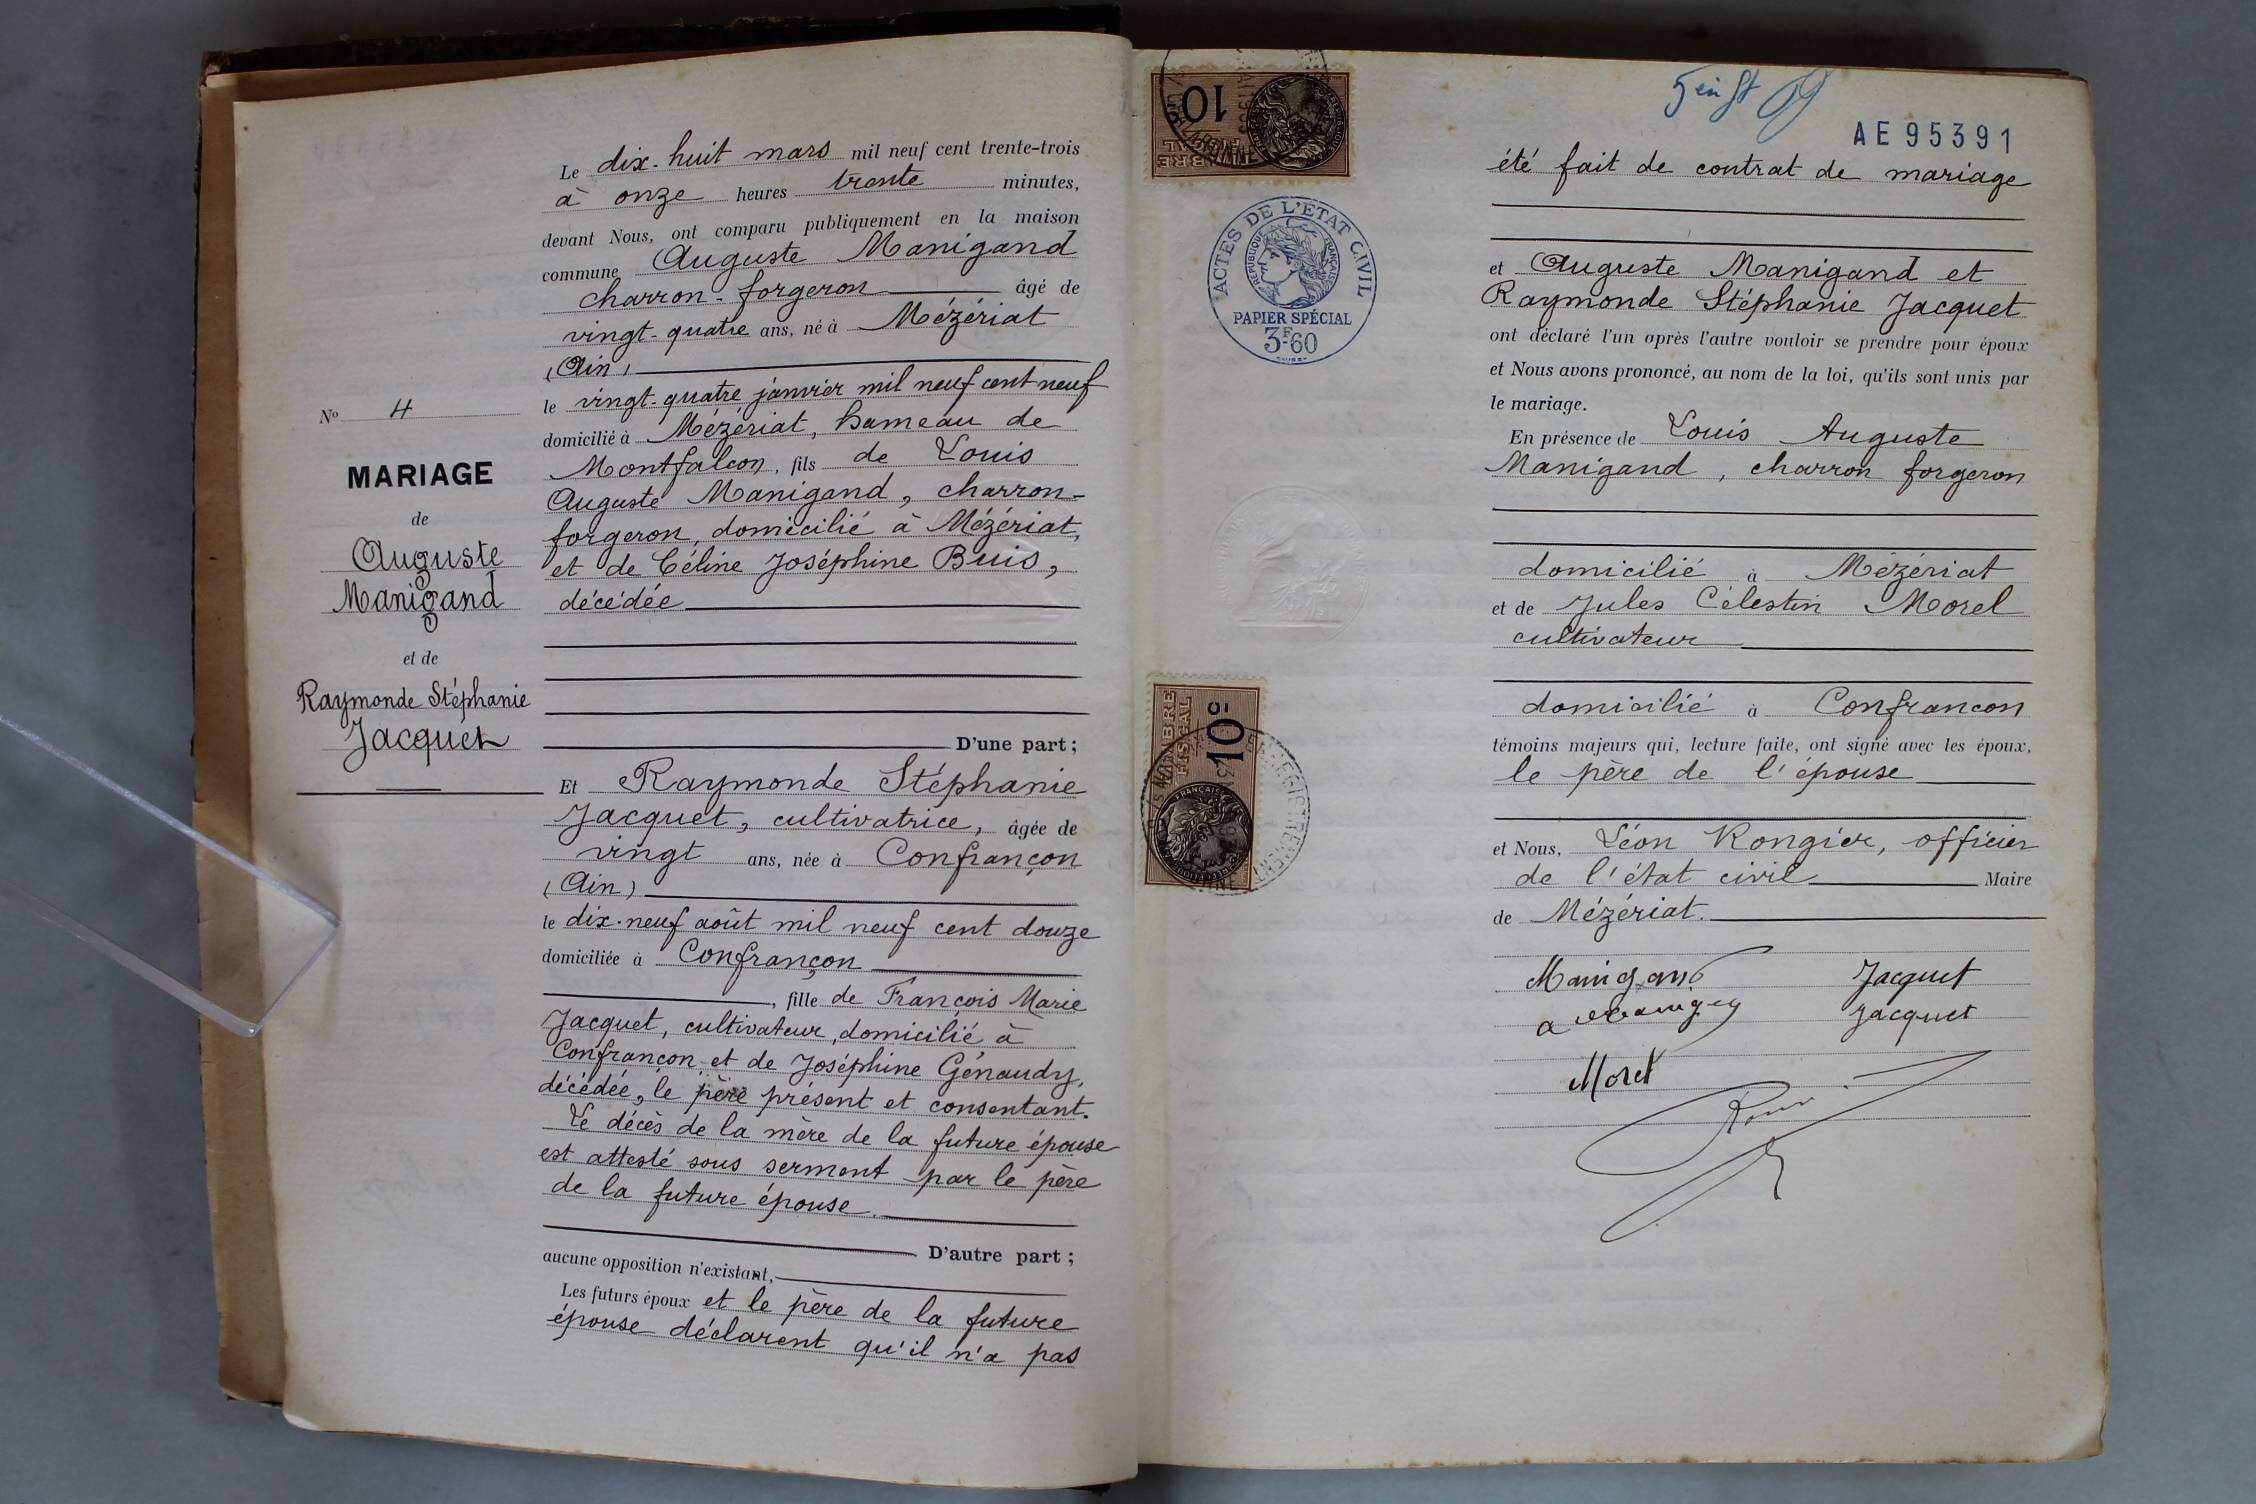 Le dix-huit mars mil neuf cent trente-trois
à onze heures trente minutes,
devant Nous, ont comparu publiquement en la maison
commune Auguste Manigand
charron-forgeron âgé de
vingt-quatre ans, né à Mézériat
(Ain)
le vingt-quatre janvier mil neuf cent neuf
domicilié à Mézériat, hameau de
Montfalcon, fils de Louis
Auguste Manigand, charron-
forgeron, domicilié à Mézériat,
et de Céline Joséphine Buis,
décédée
D'une part;
No 4
MARIAGE
de
Auguste
Manigand
et de
Raymonde Stéphanie
Jacquet
Et Raymonde Stéphanie
Jacquet, cultivatrice, âgée de
vingt ans, née à Confrançon
(Ain)
le dix-neuf août mil neuf cent douze
domiciliée à Confrançon
, fille de François Marie
Jacquet, cultivateur, domicilié à
Confrançon et de Joséphine Génaudy,
décédée, le père présent et consentant.
Le décès de la mère de la future épouse
est attesté sous serment par le père
de la future épouse.
D'autre part;
aucune opposition n'existant,
Les futurs époux et le père de la future
épouse déclarent qu'il n'a pas
10
TIMBRE
FISCAL
ACTES DE L'ÉTAT CIVIL
RÉPUBLIQUE FRANÇAISE
PAPIER SPÉCIAL
3F60
TIMBRE
FISCAL
10c
ENREGISTREMENT
AE 95391
été fait de contrat de mariage
et Auguste Manigand et
Raymonde Stéphanie Jacquet
ont déclaré l'un après l'autre vouloir se prendre pour époux
et Nous avons prononcé, au nom de la loi, qu'ils sont unis par
le mariage.
En présence de Louis Auguste
Manigand, charron forgeron
domicilié à Mézériat
et de Jules Célestin Morel
cultivateur
domicilié à Confrancon
témoins majeurs qui, lecture faite, ont signé avec les époux,
le père de l'épouse
et Nous, Léon Rongier, officier
de l'état civil Maire
de Mézériat.
Manigand Jacquet
Jacquet
Morel